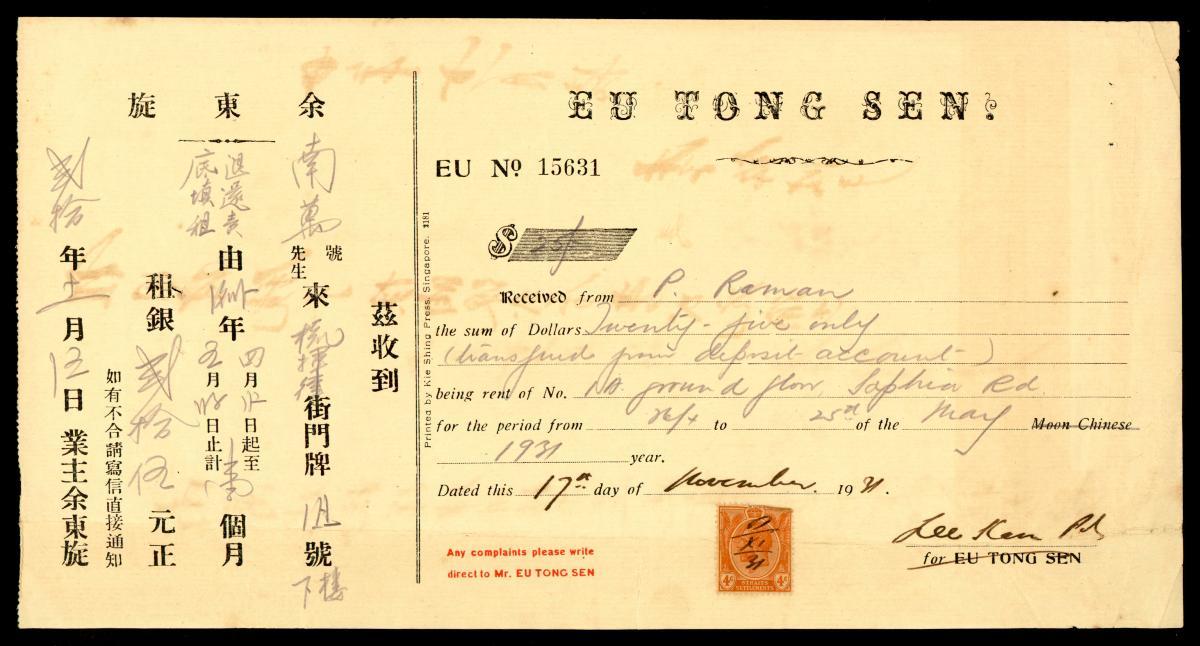 EU TONG SEN.
EU No 15631
$ 25/-
Received from P. Raman
the sum of Dollars Twenty-five only
(transferred from deposit account)
being rent of No. ground floor, Sophia Rd
for the period from 26/4 to 25th of the May Moon Chinese
1931 year.
Dated this 17th day of November 1931.
Any complaints please write
direct to Mr. EU TONG SEN
STRAITS
SETTLEMENTS
4c 4c
17
XI
31
Lee Kam
for EU TONG SEN
Printed by Kie Shing Press, Singapore. 1181
余東旋
茲收到
南萬號先生來街門牌號樓下
退還責底填租
由年四月日起至五月日止計個月
租銀貳拾伍元正
如有不合請寫信直接通知
貳拾年十一月日業主余東旋